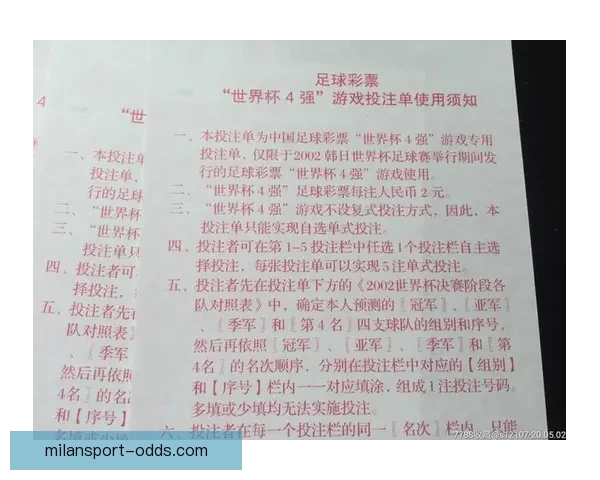 足球彩票
“世界杯 4 强”游戏投注单使用须知
一、本投注单为中国足球彩票“世界杯 4 强”游戏专用
投注单，仅限于2002 韩日世界杯足球赛举行期间发
行的足球彩票“世界杯 4 强”游戏使用。
二、“世界杯 4 强”足球彩票每注人民币 2 元。
三、“世界杯 4 强”游戏不设复式投注方式，因此，本
投注单只能实现自选单式投注。
四、投注者可在第 1-5 投注栏中任选 1个投注栏自主选
择投注，每张投注单可以实现 5 注单式投注。
五、投注者先在投注单下方的《2002世界杯决赛阶段各
队对照表》中，确定本人预测的〖冠军〗、〖亚军〗
、〖季军〗和〖第 4 名〗四支球队的组别和序号，
然后再依照〖冠军〗、〖亚军〗、〖季军〗和〖第
4名〗的名次顺序，分别在投注栏中对应的【组别】
和【序号】栏内一一对应填涂，组成1注投注号码。
多填或少填均无法实施投注。
六、投注者在每一个投注栏的同一〖名次〗栏内，只能
4
“世
一、本投注单
投注单，
行的足球
二、“世界杯
三、“世界杯
投注单只
四、投注者可
择投注，
五、投注者先在
队对照表》
、〖季军
然后再依照
4名〗的名
和【序号】
多填或少填
7788收藏@s12107-20.05.02
milansport-odds.com